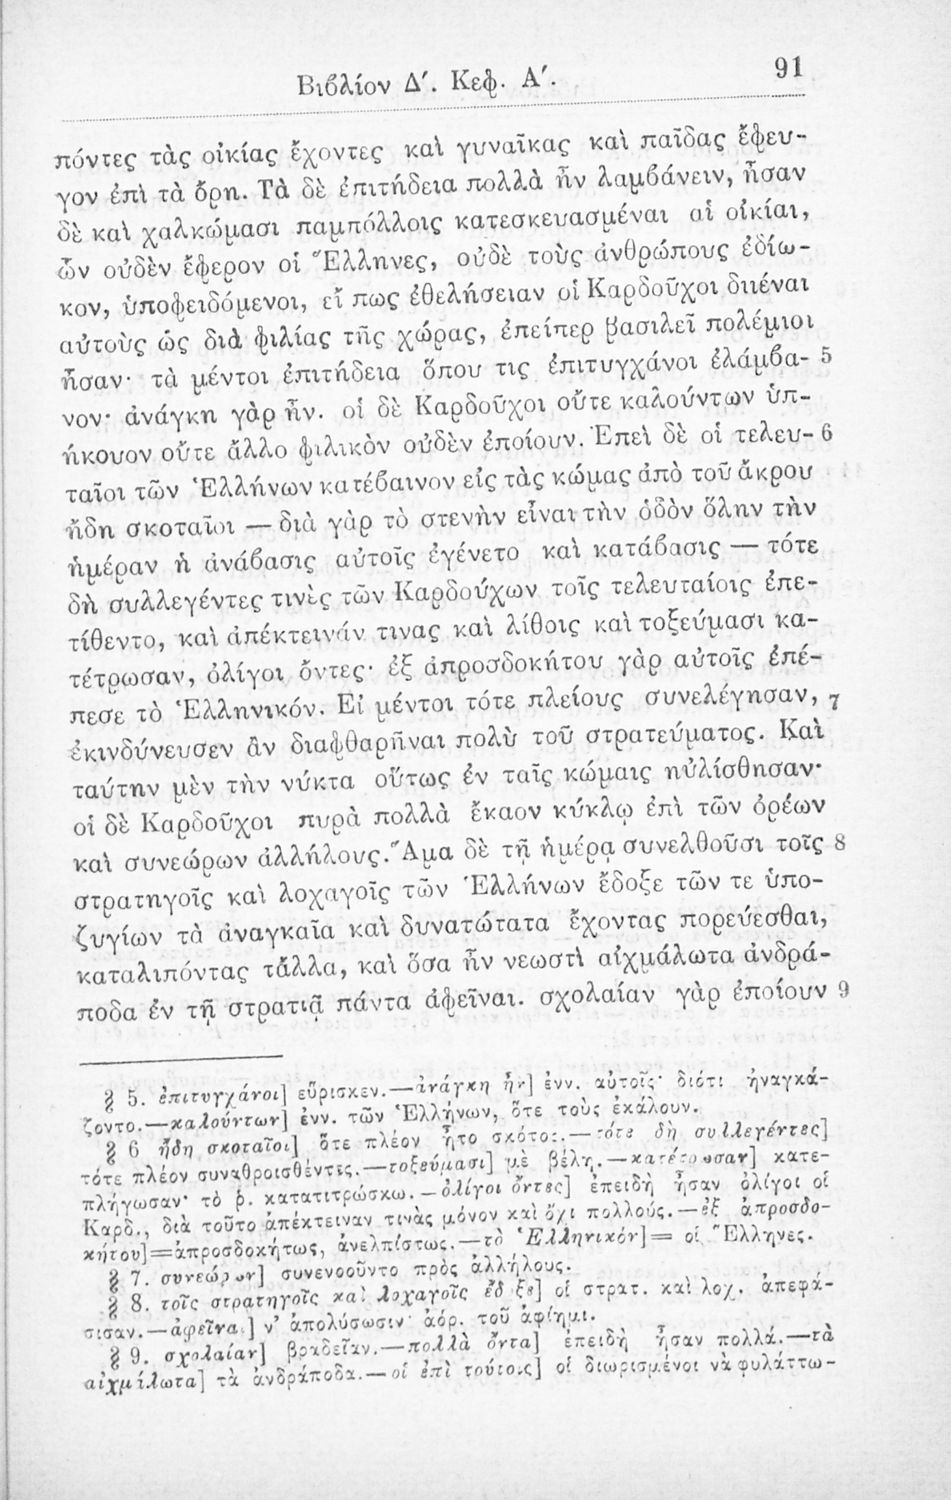 Βιβλίον Δ΄. Κεφ. Α΄.
91
πόντες τὰς οἰκίας ἔχοντες καὶ γυναῖκας καὶ παῖδας ἔφευ-
γον ἐπὶ τὰ ὄρη. Τὰ δὲ ἐπιτήδεια πολλὰ ἦν λαμβάνειν, ἦσαν
δὲ καὶ χαλκώμασι παμπόλλοις κατεσκευασμέναι αἱ οἰκίαι,
ὧν οὐδὲν ἔφερον οἱ Ἕλληνες, οὐδὲ τοὺς ἀνθρώπους ἐδίω-
κον, ὑποφειδόμενοι, εἴ πως ἐθελήσειαν οἱ Καρδοῦχοι διιέναι
αὐτοὺς ὡς διὰ φιλίας τῆς χώρας, ἐπείπερ βασιλεῖ πολέμιοι
ἦσαν· τὰ μέντοι ἐπιτήδεια ὅπου τις ἐπιτυγχάνοι ἐλάμβα- 5
νον· ἀνάγκη γὰρ ἦν. οἱ δὲ Καρδοῦχοι οὔτε καλούντων ὑπ-
ήκουον οὔτε ἄλλο φιλικὸν οὐδὲν ἐποίουν. Ἐπεὶ δὲ οἱ τελευ- 6
ταῖοι τῶν Ἑλλήνων κατέβαινον εἰς τὰς κώμας ἀπὸ τοῦ ἄκρου
ἤδη σκοταῖοι — διὰ γὰρ τὸ στενὴν εἶναι τὴν ὁδὸν ὅλην τὴν
ἡμέραν ἡ ἀνάβασις αὐτοῖς ἐγένετο καὶ κατάβασις — τότε
δὴ συλλεγέντες τινὲς τῶν Καρδούχων τοῖς τελευταίοις ἐπε-
τίθεντο, καὶ ἀπέκτεινάν τινας καὶ λίθοις καὶ τοξεύμασι κα-
τέτρωσαν, ὀλίγοι ὄντες· ἐξ ἀπροσδοκήτου γὰρ αὐτοῖς ἐπέ-
πεσε τὸ Ἑλληνικόν. Εἰ μέντοι τότε πλείους συνελέγησαν, 7
ἐκινδύνευσεν ἂν διαφθαρῆναι πολὺ τοῦ στρατεύματος. Καὶ
ταύτην μὲν τὴν νύκτα οὕτως ἐν ταῖς κώμαις ηὐλίσθησαν·
οἱ δὲ Καρδοῦχοι πυρὰ πολλὰ ἔκαον κύκλῳ ἐπὶ τῶν ὀρέων
καὶ συνεώρων ἀλλήλους. Ἅμα δὲ τῇ ἡμέρᾳ συνελθοῦσι τοῖς 8
στρατηγοῖς καὶ λοχαγοῖς τῶν Ἑλλήνων ἔδοξε τῶν τε ὑπο-
ζυγίων τὰ ἀναγκαῖα καὶ δυνατώτατα ἔχοντας πορεύεσθαι,
καταλιπόντας τἄλλα, καὶ ὅσα ἦν νεωστὶ αἰχμάλωτα ἀνδρά-
ποδα ἐν τῇ στρατιᾷ πάντα ἀφεῖναι. σχολαίαν γὰρ ἐποίουν 9
§ 5. ἐπιτυγχάνοι] εὕρισκεν.—ἀνάγκη ἦν] ἐνν. αὐτοῖς· διότι ἠναγκά-
ζοντο.—καλούντων] ἐνν. τῶν Ἑλλήνων, ὅτε τοὺς ἐκάλουν.
§ 6 ἤδη σκοταῖοι] ὅτε πλέον ἦτο σκότος.—τότε δὴ συλλεγέντες]
τότε πλέον συναθροισθέντες.—τοξεύμασι] μὲ βέλη.—κατέτρωσαν] κατε-
πλήγωσαν· τὸ ῥ. κατατιτρώσκω.—ὀλίγοι ὄντες] ἐπειδὴ ἦσαν ὀλίγοι οἱ
Καρδ., διὰ τοῦτο ἀπέκτειναν τινὰς μόνον καὶ ὄχι πολλούς.—ἐξ ἀπροσδο-
κήτου]=ἀπροσδοκήτως, ἀνελπίστως.—τὸ Ἑλληνικόν]= οἱ Ἕλληνες.
§ 7. συνεώρων] συνενοοῦντο πρὸς ἀλλήλους.
§ 8. τοῖς στρατηγοῖς καὶ λοχαγοῖς ἔδοξε] οἱ στρατ. καὶ λοχ. ἀπεφά-
σισαν.—ἀφεῖναι] ν' ἀπολύσωσιν· ἀόρ. τοῦ ἀφίημι.
§ 9. σχολαίαν] βραδεῖαν.—πολλὰ ὄντα] ἐπειδὴ ἦσαν πολλά.—τὰ
αἰχμάλωτα] τὰ ἀνδράποδα.—οἱ ἐπὶ τούτοις] οἱ διωρισμένοι νὰ φυλάττω-